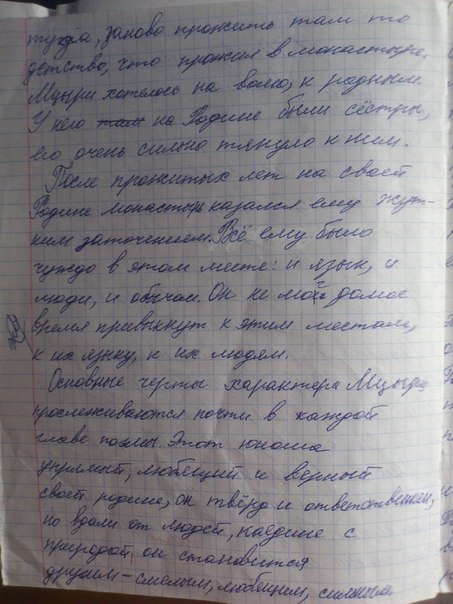 туда, заново прожить там то
детство, что прожил в монастыре.
Мцыри хотелось на волю, к родным.
У него там на Родине были сёстры,
его очень сильно тянуло к ним.
После прожитых лет на своей
Родине монастырь казался ему жут-
ким заточением. Всё ему было
чуждо в этом месте: и язык, и
люди, и обычаи. Он не мог долгое
время привыкнуть к этим местам,
к их языку, к их людям.
Основные черты характера Мцыри
прослеживаются почти в каждой
главе поэмы. Этот юноша
упрямый, любящий и верный
своей родине, он твёрд и ответственен,
но вдали от людей, наедине с
природой он становится
другим - смелым, любящим, сильным.